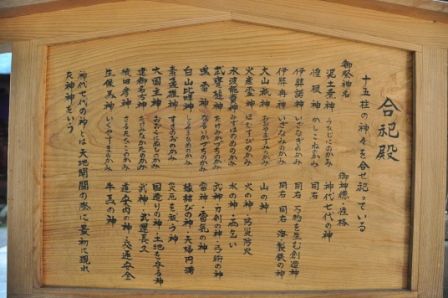 合祀殿
十五柱の神々を合せ祀っている
御祭神名 御神徳・性格
泥土煮神 うひじにのかみ 神代七代の神
惶根神 かしこねかみ 同右
伊弉諾神 いざなぎのかみ 同右 万物を生む創造神
伊弉冉神 いざなみのかみ 同右 同右
大山祇神 おおやまずみのかみ 山の神
火産霊神 ほむすびのかみ 火の神・防災防火
水波能賣神 みずはのめのかみ 水の神・雨乞い
武甕槌神 たけみかづちのかみ 武神・刀剣の神・弓術の神
鳴雷神 なるいかづちのかみ 雷神・雷乱の神
白山比咩神 しらやまひめのかみ 縁結びの神・夫婦円満
素戔嗚神 すさのおのかみ 災厄を祓う神
大国主神 おおくにぬしのかみ 国造りの神・土地を守る神
建御名方神 たけみなかたのかみ 武神・武運長久
猿田彦神 さるたひこのかみ 道案内の神・交通安全
生馬神 いくうまのかみ 牛馬の神
神代七代の神とは天地開闢の際に最初に現れ
た神神をいう